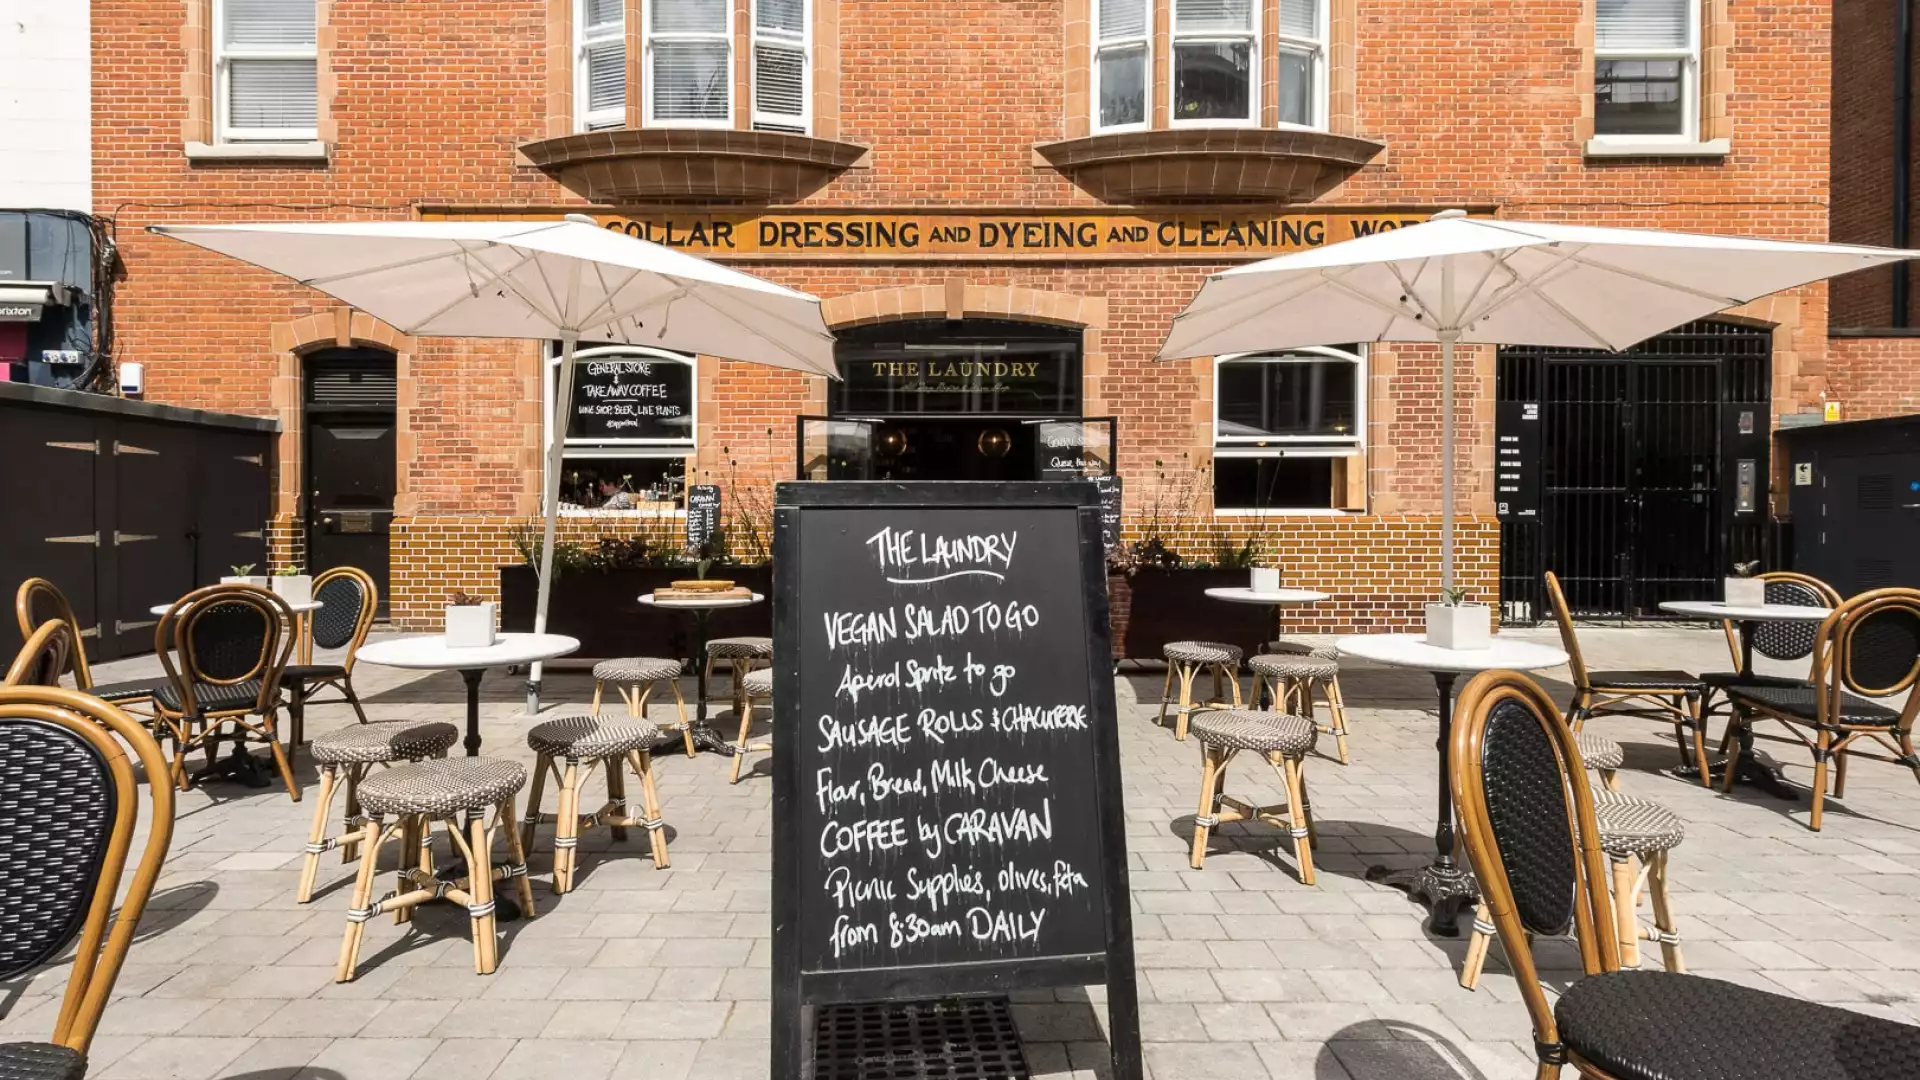 COLLAR DRESSING AND DYEING AND CLEANING
THE LAUNDRY
GENERAL STORE
&
TAKEAWAY COFFEE
WINE SHOP, BEER, LIVE PLANTS
THE LAUNDRY
VEGAN SALAD TO GO
Aperol Spritz to go
SAUSAGE ROLLS & CHACUTERIE
Flour, Bread, Milk, Cheese
COFFEE by CARAVAN
Picnic Supplies, olives, feta
from 8:30am DAILY
CARAVAN
Queue this way